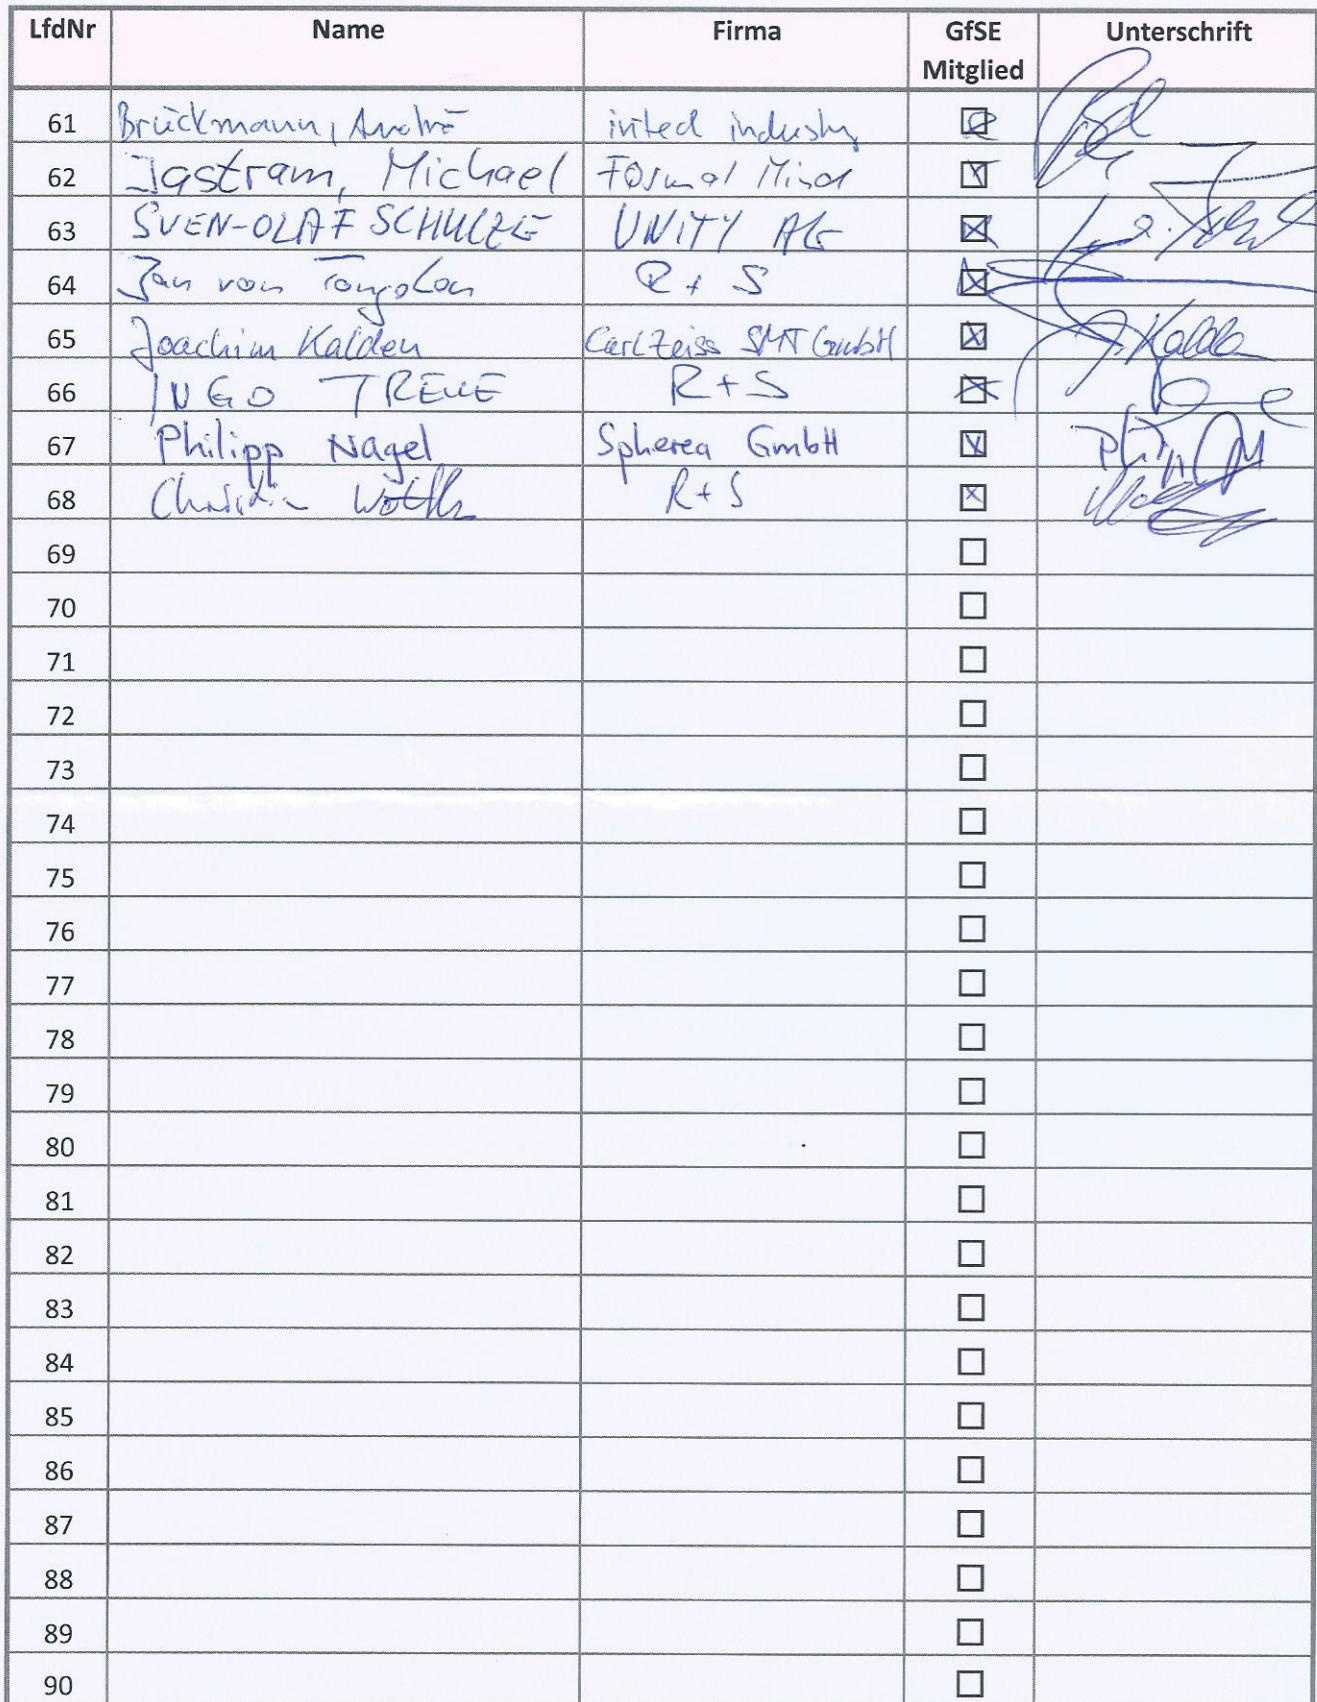 LfdNr Name Firma GfSE Mitglied Unterschrift
61 Brückmann, André inted industry
62 Jastram, Michael Formal Mind
63 SVEN-OLAF SCHULZE UNITY AG
64 Jan von R + S
65 Joachim Kalden Carl Zeiss SMT GmbH J. Kalden
66 INGO R + S
67 Philipp Nagel Spherea GmbH
68 R + S
69
70
71
72
73
74
75
76
77
78
79
80
81
82
83
84
85
86
87
88
89
90